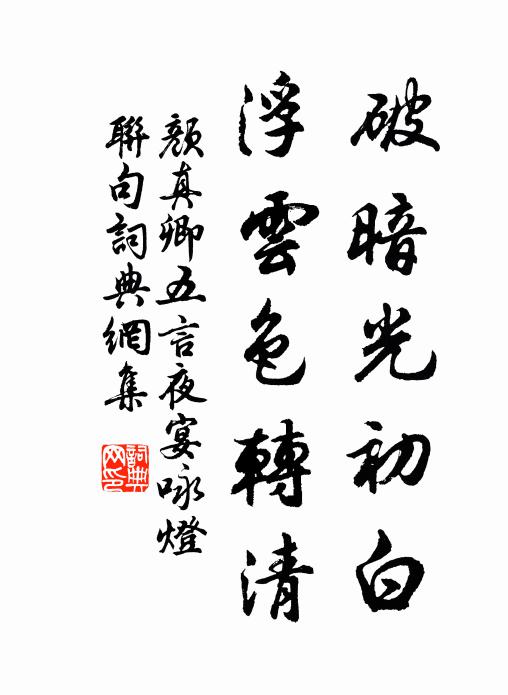 破暗光初白
浮雲色轉清
顏真卿五言夜宴咏燈
聯句詞典網集
詞典網印